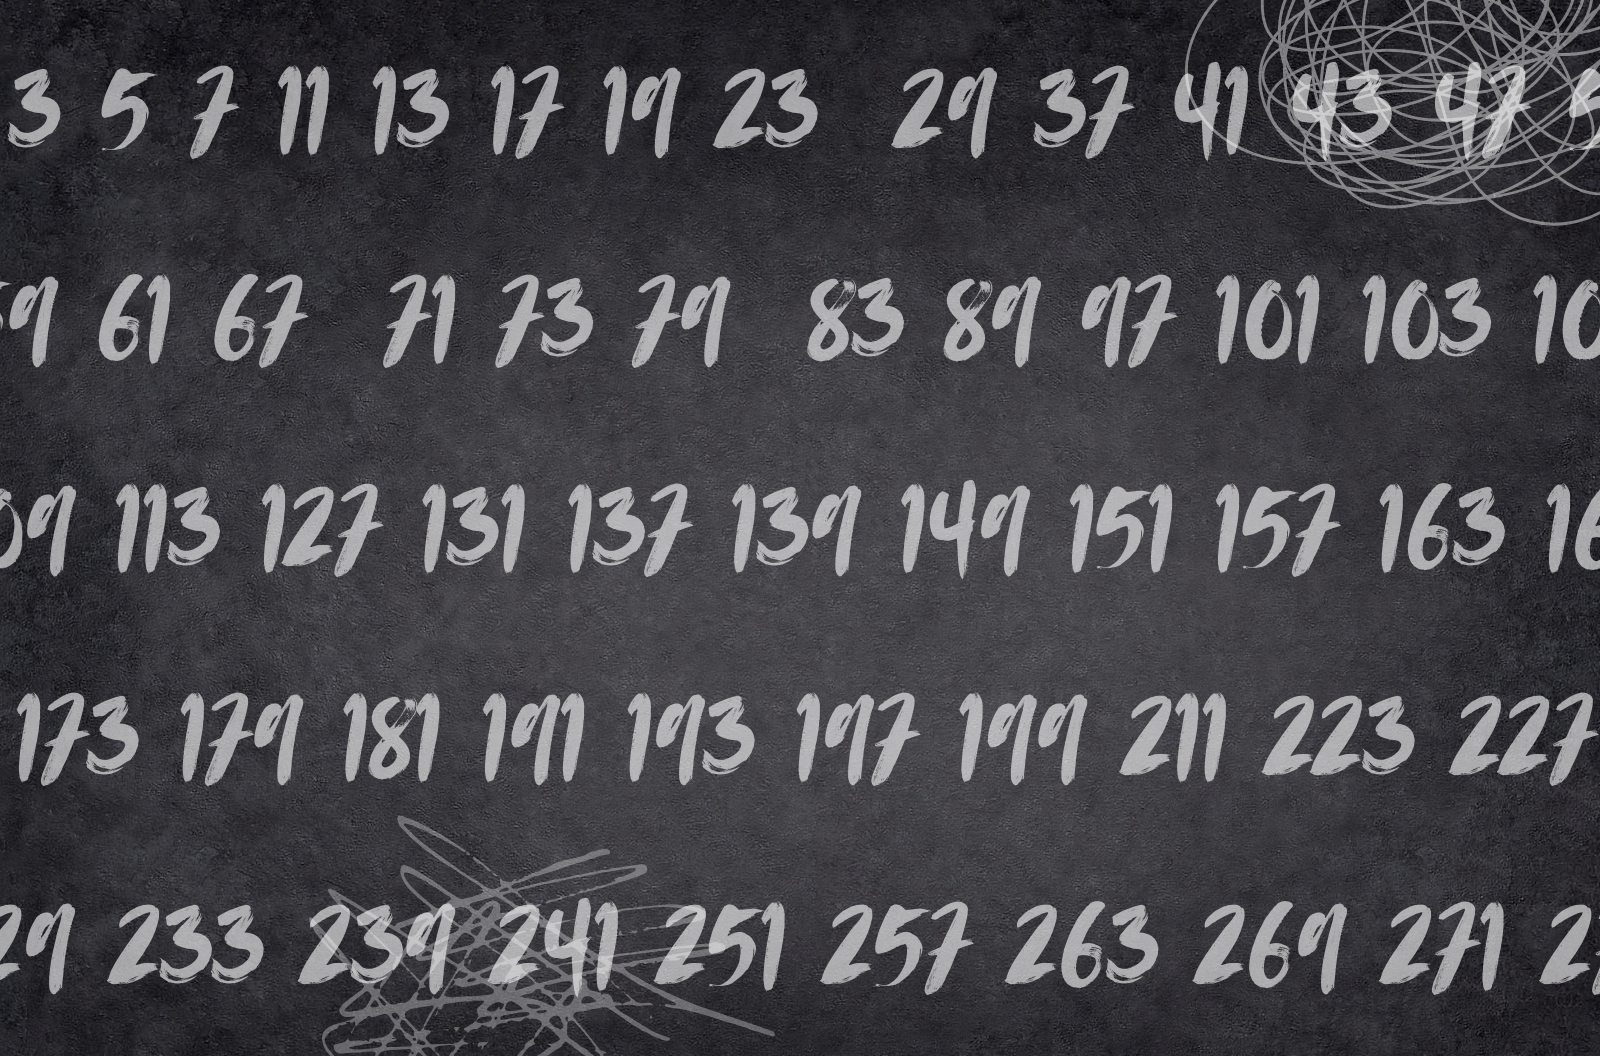 3 5 7 11 13 17 19 23 29 37 41 43 47
61 67 71 73 79 83 89 97 101 103
113 127 131 137 139 149 151 157 163
173 179 181 191 193 197 199 211 223 227
233 239 241 251 257 263 269 271